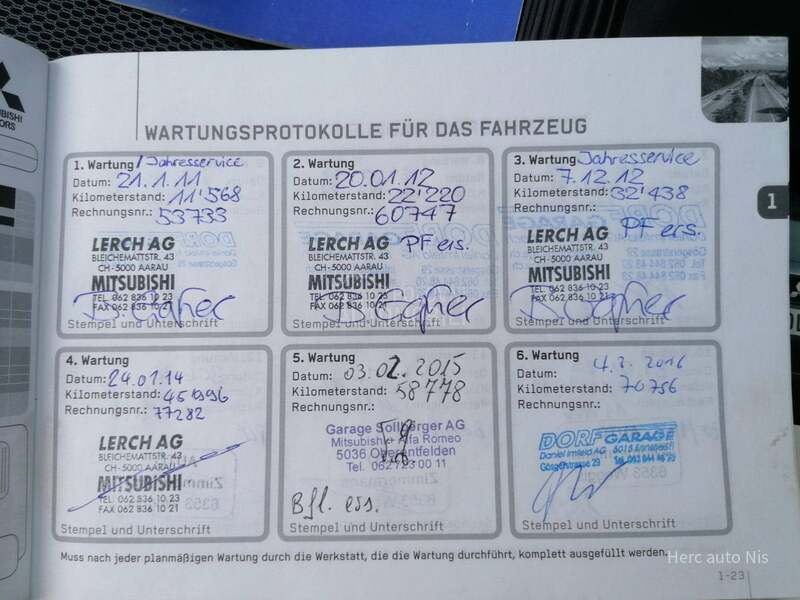 WARTUNGSPROTOKOLLE FÜR DAS FAHRZEUG
1. Wartung / Jahresservice
Datum: 21.1.11
Kilometerstand: 11'568
Rechnungsnr.: 53733
LERCH AG
BLEICHEMATTSTR. 43
CH-5000 AARAU
MITSUBISHI
TEL. 062 836 10 23
FAX 062 836 10 21
Stempel und Unterschrift
2. Wartung
Datum: 20.01.12
Kilometerstand: 22'220
Rechnungsnr.: 60747
LERCH AG PF ers.
BLEICHEMATTSTR. 43
CH-5000 AARAU
MITSUBISHI
TEL. 062 836 10 23
FAX 062 836 10 21
Stempel und Unterschrift
3. Wartung Jahresservice
Datum: 7.12.12
Kilometerstand: 32'438
Rechnungsnr.:
PF ers.
LERCH AG
BLEICHEMATTSTR. 43
CH-5000 AARAU
MITSUBISHI
TEL. 062 836 10 23
FAX 062 836 10 21
Stempel und Unterschrift
4. Wartung
Datum: 24.01.14
Kilometerstand:
Rechnungsnr.: 77282
LERCH AG
BLEICHEMATTSTR. 43
CH-5000 AARAU
MITSUBISHI
TEL. 062 836 10 23
FAX 062 836 10 21
Stempel und Unterschrift
5. Wartung
Datum: 03.02.2015
Kilometerstand: 58'778
Rechnungsnr.:
Garage AG
Mitsubishi + Alfa Romeo
5036 Oberentfelden
Tel. 062 00 11
Bfl. ers.
Stempel und Unterschrift
6. Wartung
Datum: 4.2.2016
Kilometerstand: 70756
Rechnungsnr.:
DORF GARAGE
Daniel Imfeld AG
Gösgerstrasse 29
Stempel und Unterschrift
Muss nach jeder planmäßigen Wartung durch die Werkstatt, die die Wartung durchführt, komplett ausgefüllt werden.
1
1-23
Herc auto Nis